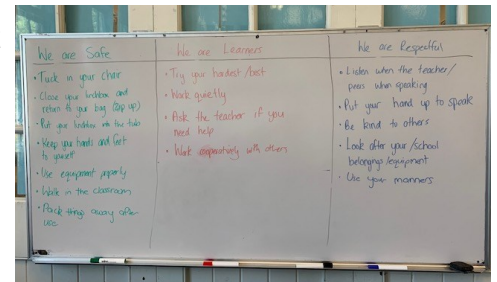 We are Safe
• Tuck in your chair
• Close your lunchbox and
return to your bag (zip up)
• Put your lunchbox into the tubs
• Keep your hands and feet
to yourself
• Use equipment properly
• Walk in the classroom
• Pack things away after
use
We are Learners
• Try your hardest/best
• Work quietly
• Ask the teacher if you
need help
• Work cooperatively with others
We are Respectful
• Listen when the teacher/
peers when speaking
• Put your hand up to speak
• Be kind to others
• Look after your/school
belongings/equipment
• Use your manners